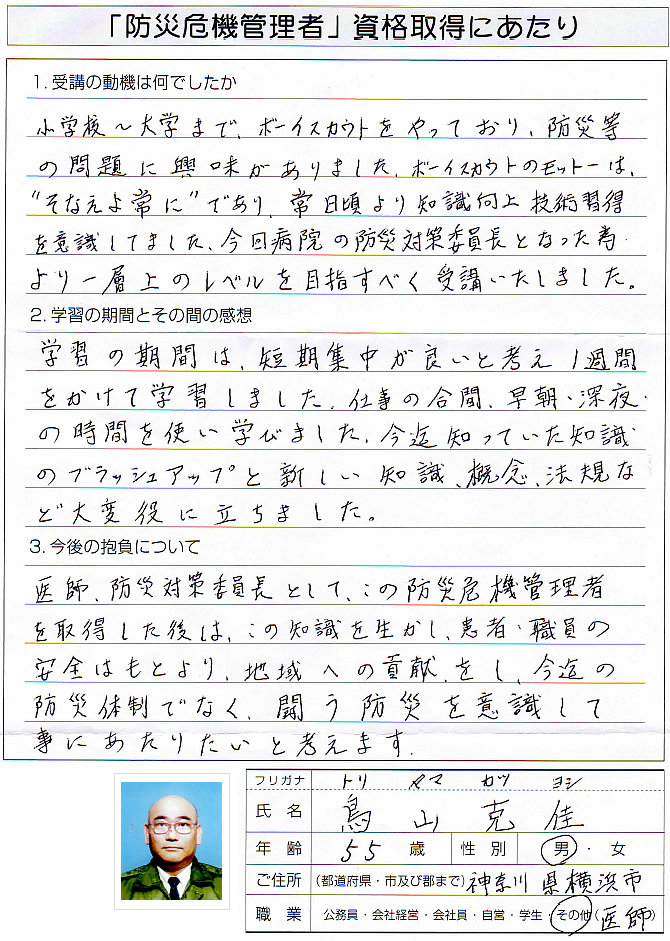 「防災危機管理者」資格取得にあたり
1. 受講の動機は何でしたか
小学校〜大学まで、ボーイスカウトをやっており、防災等
の問題に興味がありました。ボーイスカウトのモットーは、
“そなえよ常に”であり、常日頃より知識向上技術習得
を意識してました、今回病院の防災対策委員長となった為、
より一層上のレベルを目指すべく受講いたしました。
2. 学習の期間とその間の感想
学習の期間は、短期集中が良いと考え1週間
をかけて学習しました。仕事の合間、早朝・深夜
の時間を使い学びました、今迄知っていた知識
のブラッシュアップと新しい知識、概念、法規な
ど大変役に立ちました。
3. 今後の抱負について
医師、防災対策委員長として、この防災危機管理者
を取得した後は、この知識を生かし、患者・職員の
安全はもとより、地域への貢献をし、今迄の
防災体制でなく、闘う防災を意識して
事にあたりたいと考えます.
フリガナ トリ ヤマ カツ ヨシ
氏名 鳥山克佳
年齢 55 歳 性別 男・女
ご住所 (都道府県・市及び郡まで) 神奈川県横浜市
職業 公務員・会社経営・会社員・自営・学生・その他(医師)